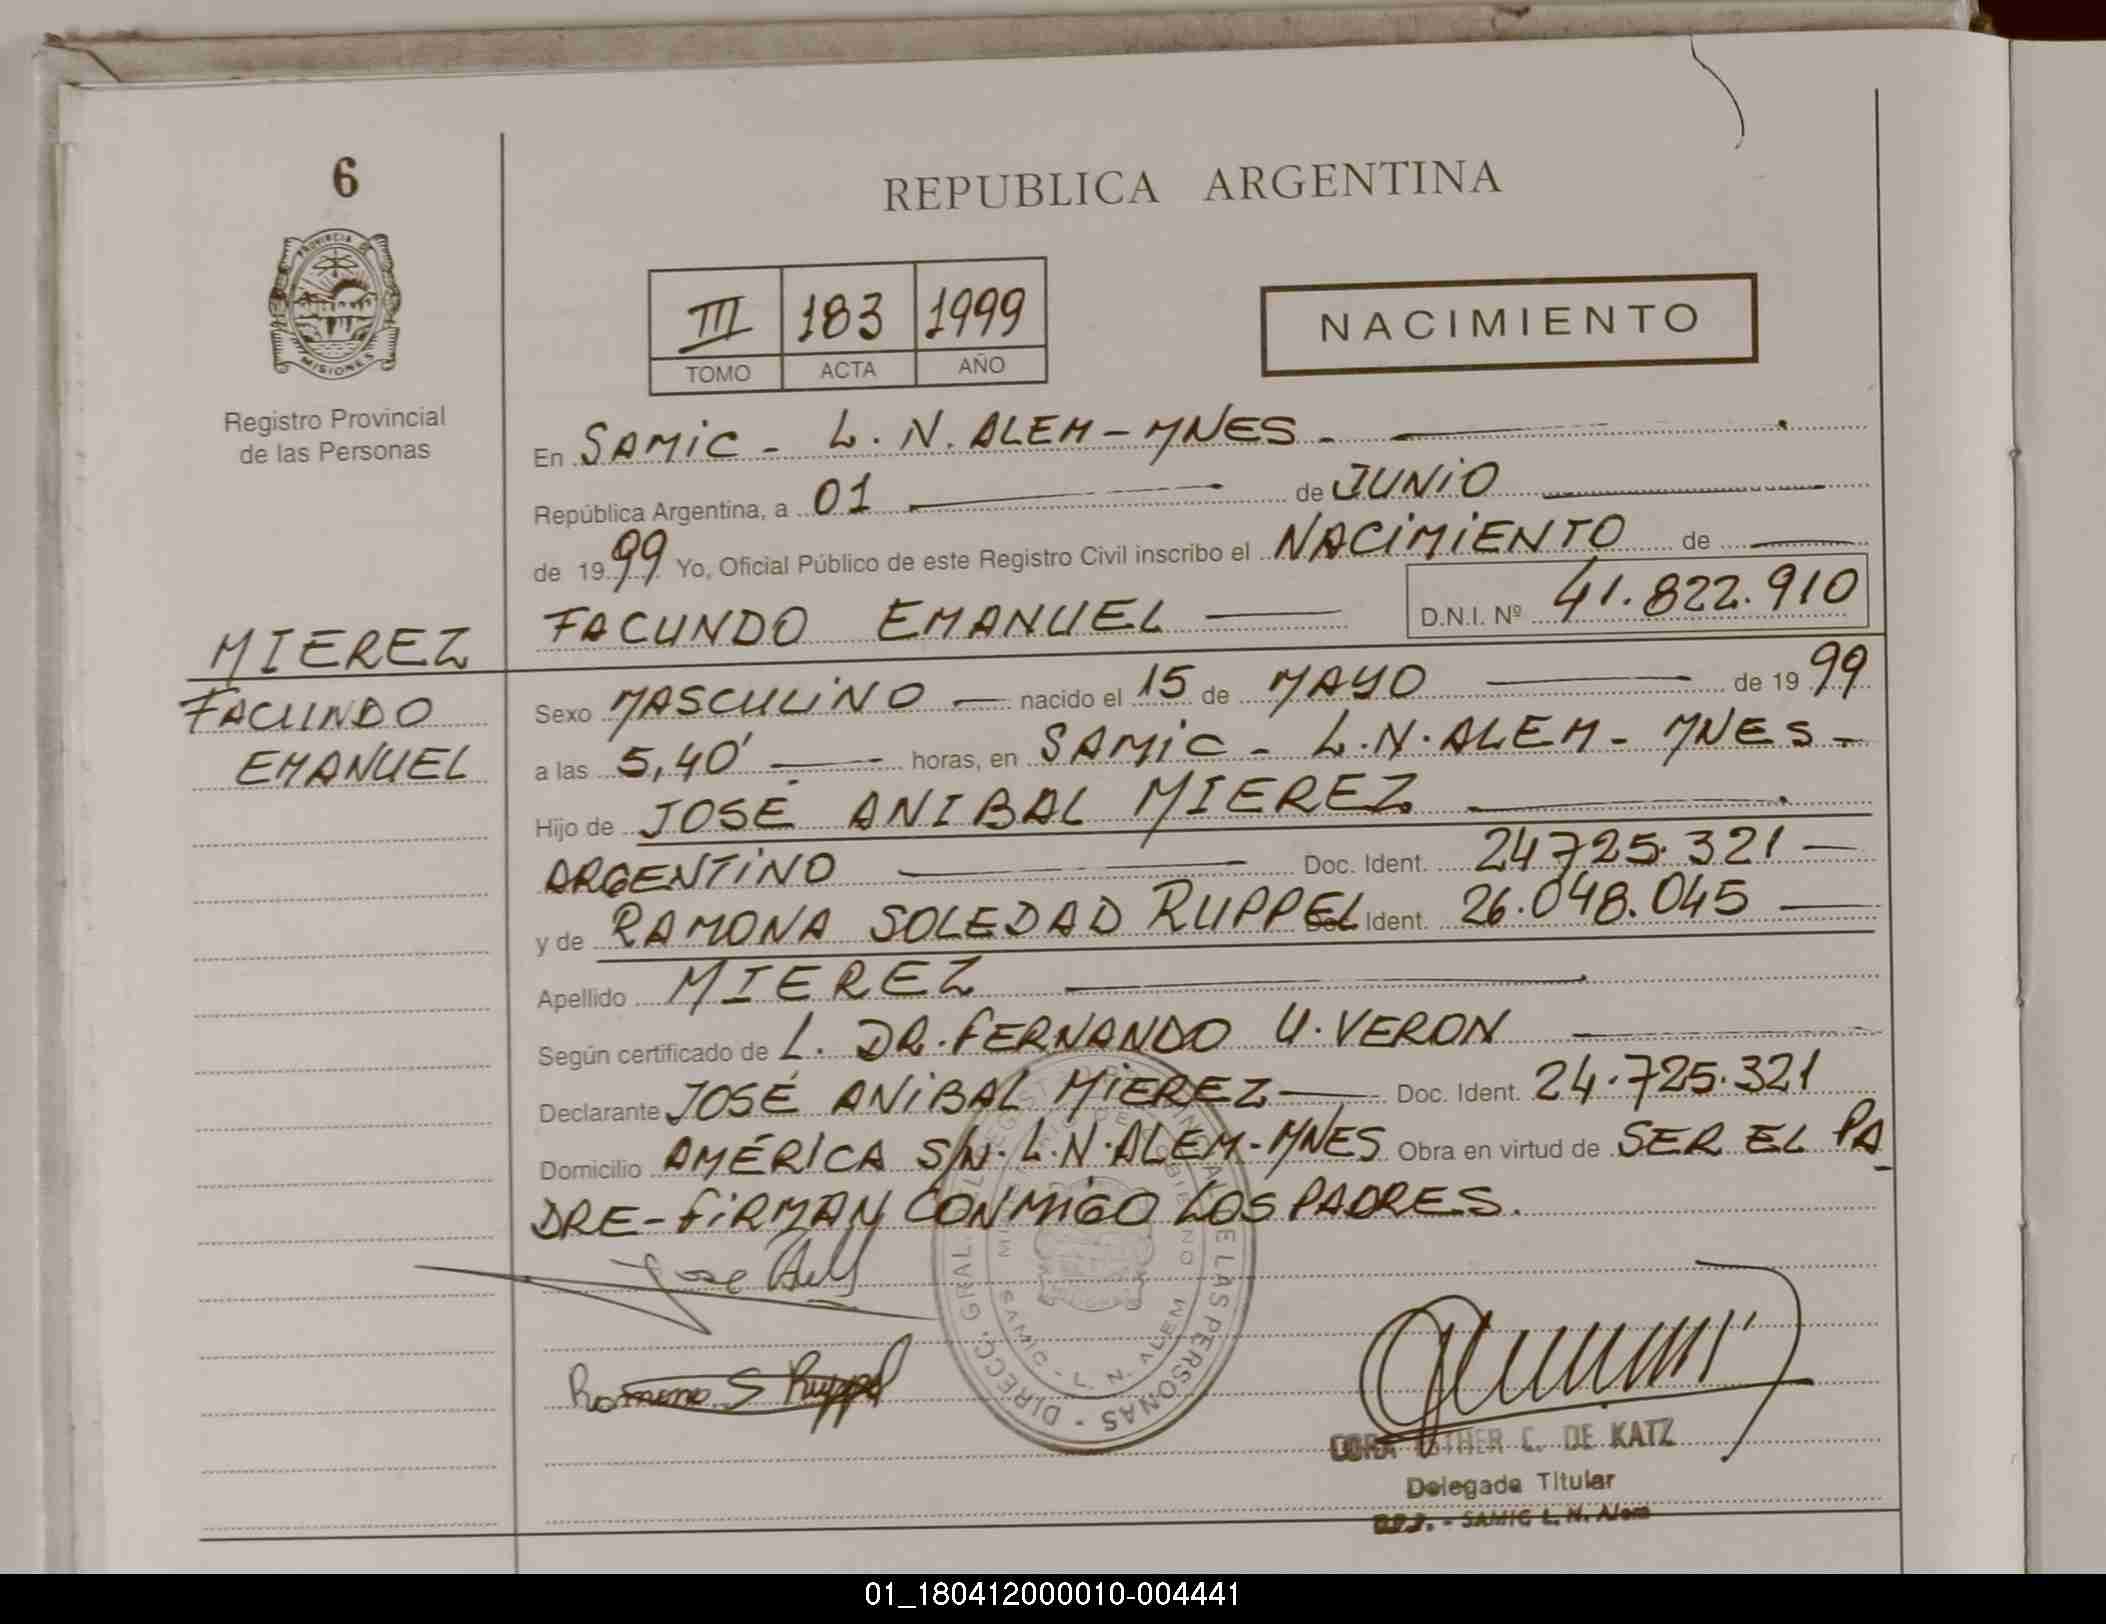 6
REPUBLICA ARGENTINA
PROVINCIA DE
MISIONES
III 183 1999
TOMO ACTA AÑO
NACIMIENTO
Registro Provincial
de las Personas
En SAMIC - L. N. ALEM - MNES -
República Argentina, a 01 de JUNIO
de 1999 Yo, Oficial Público de este Registro Civil inscribo el NACIMIENTO de
FACUNDO EMANUEL D.N.I. Nº 41.822.910
MIEREZ
FACUNDO
EMANUEL
Sexo MASCULINO nacido el 15 de MAYO de 1999
a las 5,40' horas, en SAMIC - L.N. ALEM - MNES -
Hijo de JOSÉ ANIBAL MIEREZ
ARGENTINO Doc. Ident. 24725.321
y de RAMONA SOLEDAD RUPPEL Doc. Ident. 26.048.045
Apellido MIEREZ
Según certificado de L. DR. FERNANDO U. VERON
Declarante JOSÉ ANIBAL MIEREZ Doc. Ident. 24.725.321
Domicilio AMÉRICA S/N. L.N. ALEM - MNES Obra en virtud de SER EL PA
DRE - FIRMAN CONMIGO LOS PADRES.
Jose
Ramona S Ruppel
DIRECC. GRAL. DE LAS PERSONAS
SAMIC - L. N. ALEM
ESTHER C. DE KATZ
Delegada Titular
R.P.P. - SAMIC L. N. Alem
01_180412000010-004441